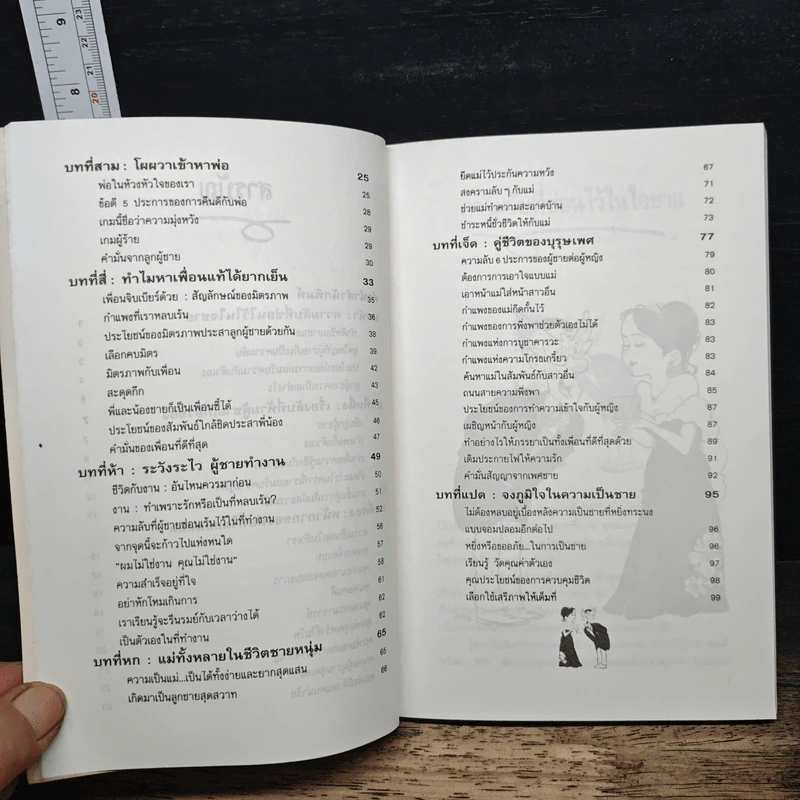 บทที่สาม : โผผวาเข้าหาพ่อ 25
พ่อในห้วงหัวใจของเรา 25
ข้อดี 5 ประการของการคืนดีกับพ่อ 28
เกมนี้ชื่อว่าความมุ่งหวัง 29
เกมผู้ร้าย 29
คำมั่นจากลูกผู้ชาย 30
บทที่สี่ : ทำไมหาเพื่อนแท้ได้ยากเย็น 33
เพื่อนจิบเบียร์ด้วย : สัญลักษณ์ของมิตรภาพ 35
กำแพงที่เราหลบเร้น 36
ประโยชน์ของมิตรภาพประสาลูกผู้ชายด้วยกัน 38
เลือกคบมิตร 39
มิตรภาพกับเพื่อน 42
สะดุดกึก 43
พี่และน้องชายก็เป็นเพื่อนซี้ได้ 45
ประโยชน์ของสัมพันธ์ใกล้ชิดประสาพี่น้อง 46
คำมั่นของเพื่อนที่ดีที่สุด 47
บทที่ห้า : ระวังระไว ผู้ชายทำงาน 49
ชีวิตกับงาน : อันไหนควรมาก่อน 50
งาน : ทำเพราะรักหรือเป็นที่หลบเร้น? 51
ความลับที่ผู้ชายซ่อนเร้นไว้ในที่ทำงาน 52
จากจุดนี้จะก้าวไปแห่งหนใด 57
"ผมไม่ใช่งาน คุณไม่ใช่งาน" 58
ความสำเร็จอยู่ที่ใจ 61
อย่าหักโหมเกินการ 61
เราเรียนรู้จะรื่นรมย์กับเวลาว่างได้ 62
เป็นตัวเองในที่ทำงาน 62
บทที่หก : แม่ทั้งหลายในชีวิตชายหนุ่ม 65
ความเป็นแม่...เป็นได้ทั้งง่ายและยากสุดแสน 65
เกิดมาเป็นลูกชายสุดสวาท 66
ยึดแม่ไว้ประกันความหวัง 67
สงครามลับ ๆ กับแม่ 71
ช่วยแม่ทำความสะอาดบ้าน 72
ชำระหนี้ชั่วชีวิตให้กับแม่ 73
บทที่เจ็ด : คู่ชีวิตของบุรุษเพศ 77
ความลับ 6 ประการของผู้ชายต่อผู้หญิง 79
ต้องการการเอาใจแบบแม่ 80
เอาหน้าแม่ใส่หน้าสาวอื่น 81
กำแพงของแม่ก็กีดกั้นไว้ 82
กำแพงของการพึ่งพาช่วยตัวเองไม่ได้ 82
กำแพงแห่งการบูชาคารวะ 83
กำแพงแห่งความโกรธเกรี้ยว 83
ค้นหาแม่ในสัมพันธ์กับสาวอื่น 84
ถนนสายความพึ่งพา 85
ประโยชน์ของการทำความเข้าใจกับผู้หญิง 87
เผชิญหน้ากับผู้หญิง 87
ทำอย่างไรให้ภรรยาเป็นทั้งเพื่อนที่ดีที่สุดด้วย 89
เติมประกายไฟให้ความรัก 91
คำมั่นสัญญาจากเพศชาย 92
บทที่แปด : จงภูมิใจในความเป็นชาย 95
ไม่ต้องหลบอยู่เบื้องหลังความเป็นชายที่หยิ่งทระนง
แบบจอมปลอมอีกต่อไป 96
หยิ่งหรือขออภัย...ในการเป็นชาย 96
เรียนรู้ วัดคุณค่าตัวเอง 97
คุณประโยชน์ของการควบคุมชีวิต 98
เลือกใช้เสรีภาพให้เต็มที่ 99